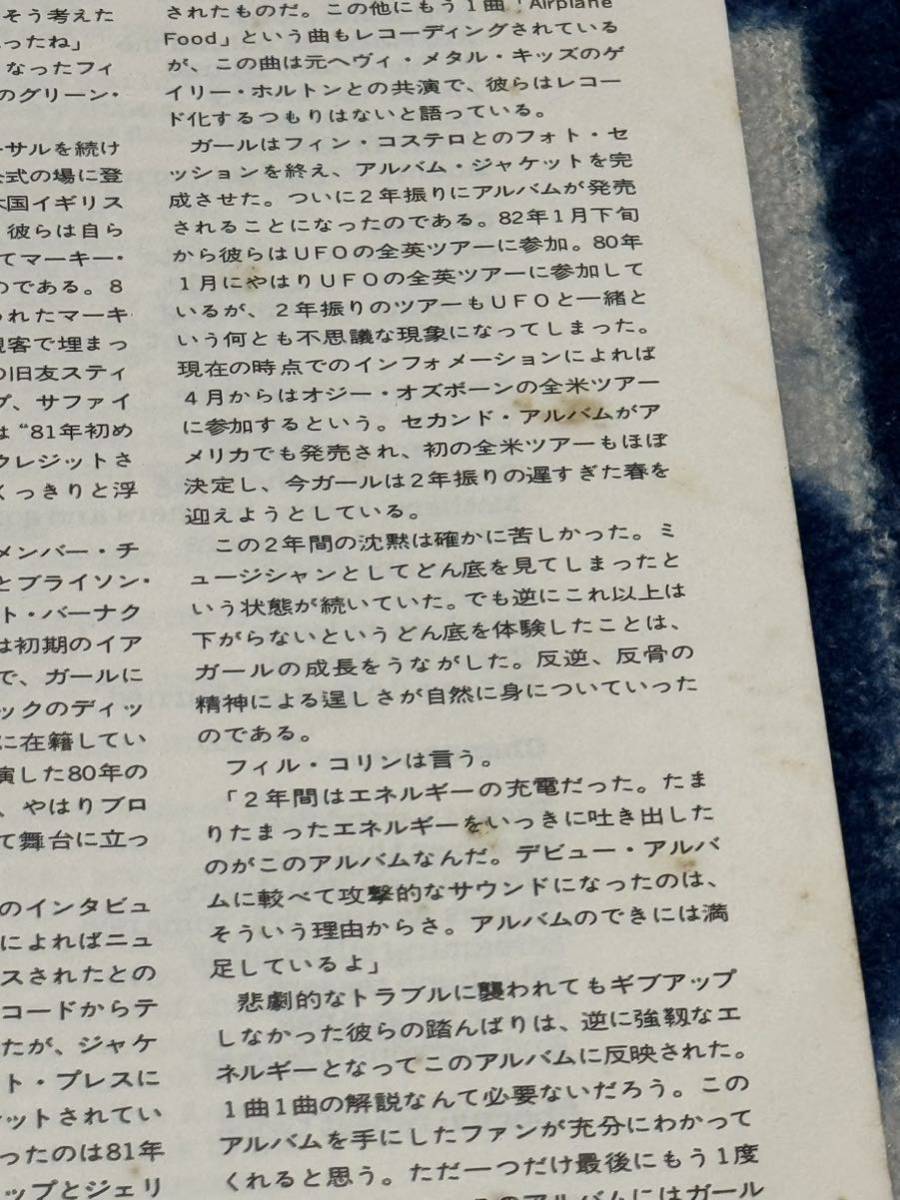 そう考えた
ったね」
なったフィ
のグリーン・
ーサルを続け
公式の場に登
本国イギリス
彼らは自ら
てマーキー・
のである。8
られたマーキ
観客で埋まっ
の旧友スティ
プ、サファイ
は“81年初め
クレジットさ
くっきりと浮
メンバー・チ
とブライソン・
ト・バーナク
は初期のイア
で、ガールに
ックのディッ
に在籍してい
演した80年の
、やはりブロ
て舞台に立っ
のインタビュ
によればニュ
スされたとの
コードからテ
たが、ジャケ
ト・プレスに
ケットされてい
ったのは81年
ップとジェリ
されたものだ。この他にもう1曲「Airplane
Food」という曲もレコーディングされている
が、この曲は元ヘヴィ・メタル・キッズのゲ
イリー・ホルトンとの共演で、彼らはレコー
ド化するつもりはないと語っている。
ガールはフィン・コステロとのフォト・セ
ッションを終え、アルバム・ジャケットを完
成させた。ついに2年振りにアルバムが発売
されることになったのである。82年1月下旬
から彼らはUFOの全英ツアーに参加。80年
1月にやはりUFOの全英ツアーに参加して
いるが、2年振りのツアーもUFOと一緒と
いう何とも不思議な現象になってしまった。
現在の時点でのインフォメーションによれば
4月からはオジー・オズボーンの全米ツアー
に参加するという。セカンド・アルバムがア
メリカでも発売され、初の全米ツアーもほぼ
決定し、今ガールは2年振りの遅すぎた春を
迎えようとしている。
この2年間の沈黙は確かに苦しかった。ミ
ュージシャンとしてどん底を見てしまったと
いう状態が続いていた。でも逆にこれ以上は
下がらないというどん底を体験したことは、
ガールの成長をうながした。反逆、反骨の
精神による逞しさが自然に身についていった
のである。
フィル・コリンは言う。
「2年間はエネルギーの充電だった。たま
りたまったエネルギーをいっきに吐き出した
のがこのアルバムなんだ。デビュー・アルバ
ムに較べて攻撃的なサウンドになったのは、
そういう理由からさ。アルバムのできには満
足しているよ」
悲劇的なトラブルに襲われてもギブアップ
しなかった彼らの踏んばりは、逆に強靱なエ
ネルギーとなってこのアルバムに反映された。
1曲1曲の解説なんて必要ないだろう。この
アルバムを手にしたファンが充分にわかって
くれると思う。ただ一つだけ最後にもう1度
のアルバムにはガール